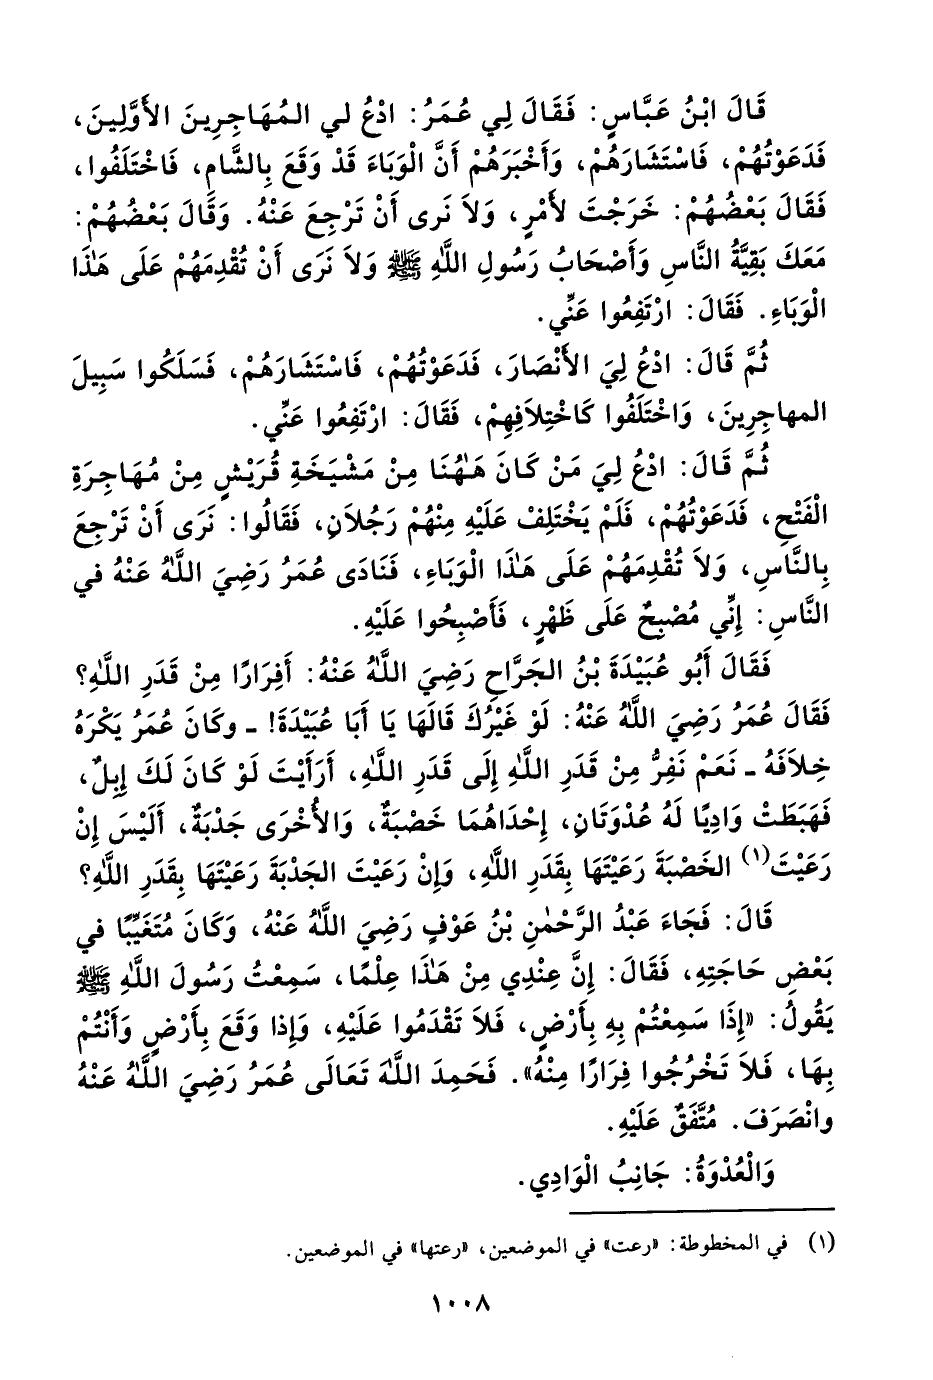 قَالَ ابْنُ عَبَّاسٍ: فَقَالَ لِي عُمَرُ: ادْعُ لي المُهَاجِرِينَ الأَوَّلِينَ،
فَدَعَوْتُهُمْ، فَاسْتَشَارَهُمْ، وَأَخْبَرَهُمْ أَنَّ الْوَبَاءَ قَدْ وَقَعَ بِالشَّامِ، فَاخْتَلَفُوا،
فَقَالَ بَعْضُهُمْ: خَرَجْتَ لأَمْرٍ، وَلاَ نَرى أَنْ تَرْجِعَ عَنْهُ. وَقَالَ بَعْضُهُمْ:
مَعَكَ بَقِيَّةُ النَّاسِ وَأَصْحَابُ رَسُولِ اللَّهِ ﷺ وَلاَ نَرَى أَنْ تُقْدِمَهُمْ عَلَى هَٰذَا
الْوَبَاءِ. فَقَالَ: ارْتَفِعُوا عَنِّي.
ثُمَّ قَالَ: ادْعُ لِيَ الأَنْصَارَ، فَدَعَوْتُهُمْ، فَاسْتَشَارَهُمْ، فَسَلَكُوا سَبِيلَ
المهاجِرِينَ، وَاخْتَلَفُوا كَاخْتِلاَفِهِمْ، فَقَالَ: ارْتَفِعُوا عَنِّي.
ثُمَّ قَالَ: ادْعُ لِيَ مَنْ كَانَ هَٰهُنَا مِنْ مَشْيَخَةِ قُرَيْشٍ مِنْ مُهَاجِرَةِ
الْفَتْحِ، فَدَعَوْتُهُمْ، فَلَمْ يَخْتَلِفْ عَلَيْهِ مِنْهُمْ رَجُلاَنِ، فَقَالُوا: نَرَى أَنْ تَرْجِعَ
بِالنَّاسِ، وَلاَ تُقْدِمَهُمْ عَلَى هَٰذَا الْوَبَاءِ، فَنَادَى عُمَرُ رَضِيَ اللَّهُ عَنْهُ في
النَّاسِ: إِنِّي مُصْبِحٌ عَلَى ظَهْرٍ، فَأَصْبِحُوا عَلَيْهِ.
فَقَالَ أَبُو عُبَيْدَةَ بْنُ الجَرَّاحِ رَضِيَ اللَّهُ عَنْهُ: أَفِرَارًا مِنْ قَدَرِ اللَّهِ؟
فَقَالَ عُمَرُ رَضِيَ اللَّهُ عَنْهُ: لَوْ غَيْرُكَ قَالَهَا يَا أَبَا عُبَيْدَةَ! - وكَانَ عُمَرُ يَكْرَهُ
خِلاَفَهُ - نَعَمْ نَفِرُّ مِنْ قَدَرِ اللَّهِ إِلَى قَدَرِ اللَّهِ، أَرَأَيْتَ لَوْ كَانَ لَكَ إِبِلٌ،
فَهَبَطَتْ وَادِيًا لَهُ عُدْوَتَانِ، إِحْدَاهُمَا خَصْبَةٌ، وَالأُخْرَى جَدْبَةٌ، أَلَيْسَ إِنْ
رَعَيْتَ(١) الخَصْبَةَ رَعَيْتَهَا بِقَدَرِ اللَّهِ، وَإِنْ رَعَيْتَ الجَدْبَةَ رَعَيْتَهَا بِقَدَرِ اللَّهِ؟
قَالَ: فَجَاءَ عَبْدُ الرَّحْمٰنِ بْنُ عَوْفٍ رَضِيَ اللَّهُ عَنْهُ، وَكَانَ مُتَغَيِّبًا في
بَعْضِ حَاجَتِهِ، فَقَالَ: إِنَّ عِنْدِي مِنْ هَٰذَا عِلْمًا، سَمِعْتُ رَسُولَ اللَّهِ ﷺ
يَقُولُ: «إِذَا سَمِعْتُمْ بِهِ بِأَرْضٍ، فَلاَ تَقْدَمُوا عَلَيْهِ، وَإِذا وَقَعَ بِأَرْضٍ وَأَنْتُمْ
بِهَا، فَلاَ تَخْرُجُوا فِرَارًا مِنْهُ». فَحَمِدَ اللَّهَ تَعَالَى عُمَرُ رَضِيَ اللَّهُ عَنْهُ
وانْصَرَفَ. مُتَّفَقٌ عَلَيْهِ.
وَالْعُدْوَةُ: جَانِبُ الْوَادِي.
(١) في المخطوطة: «رعت» في الموضعين، «رعتها» في الموضعين.
١٠٠٨